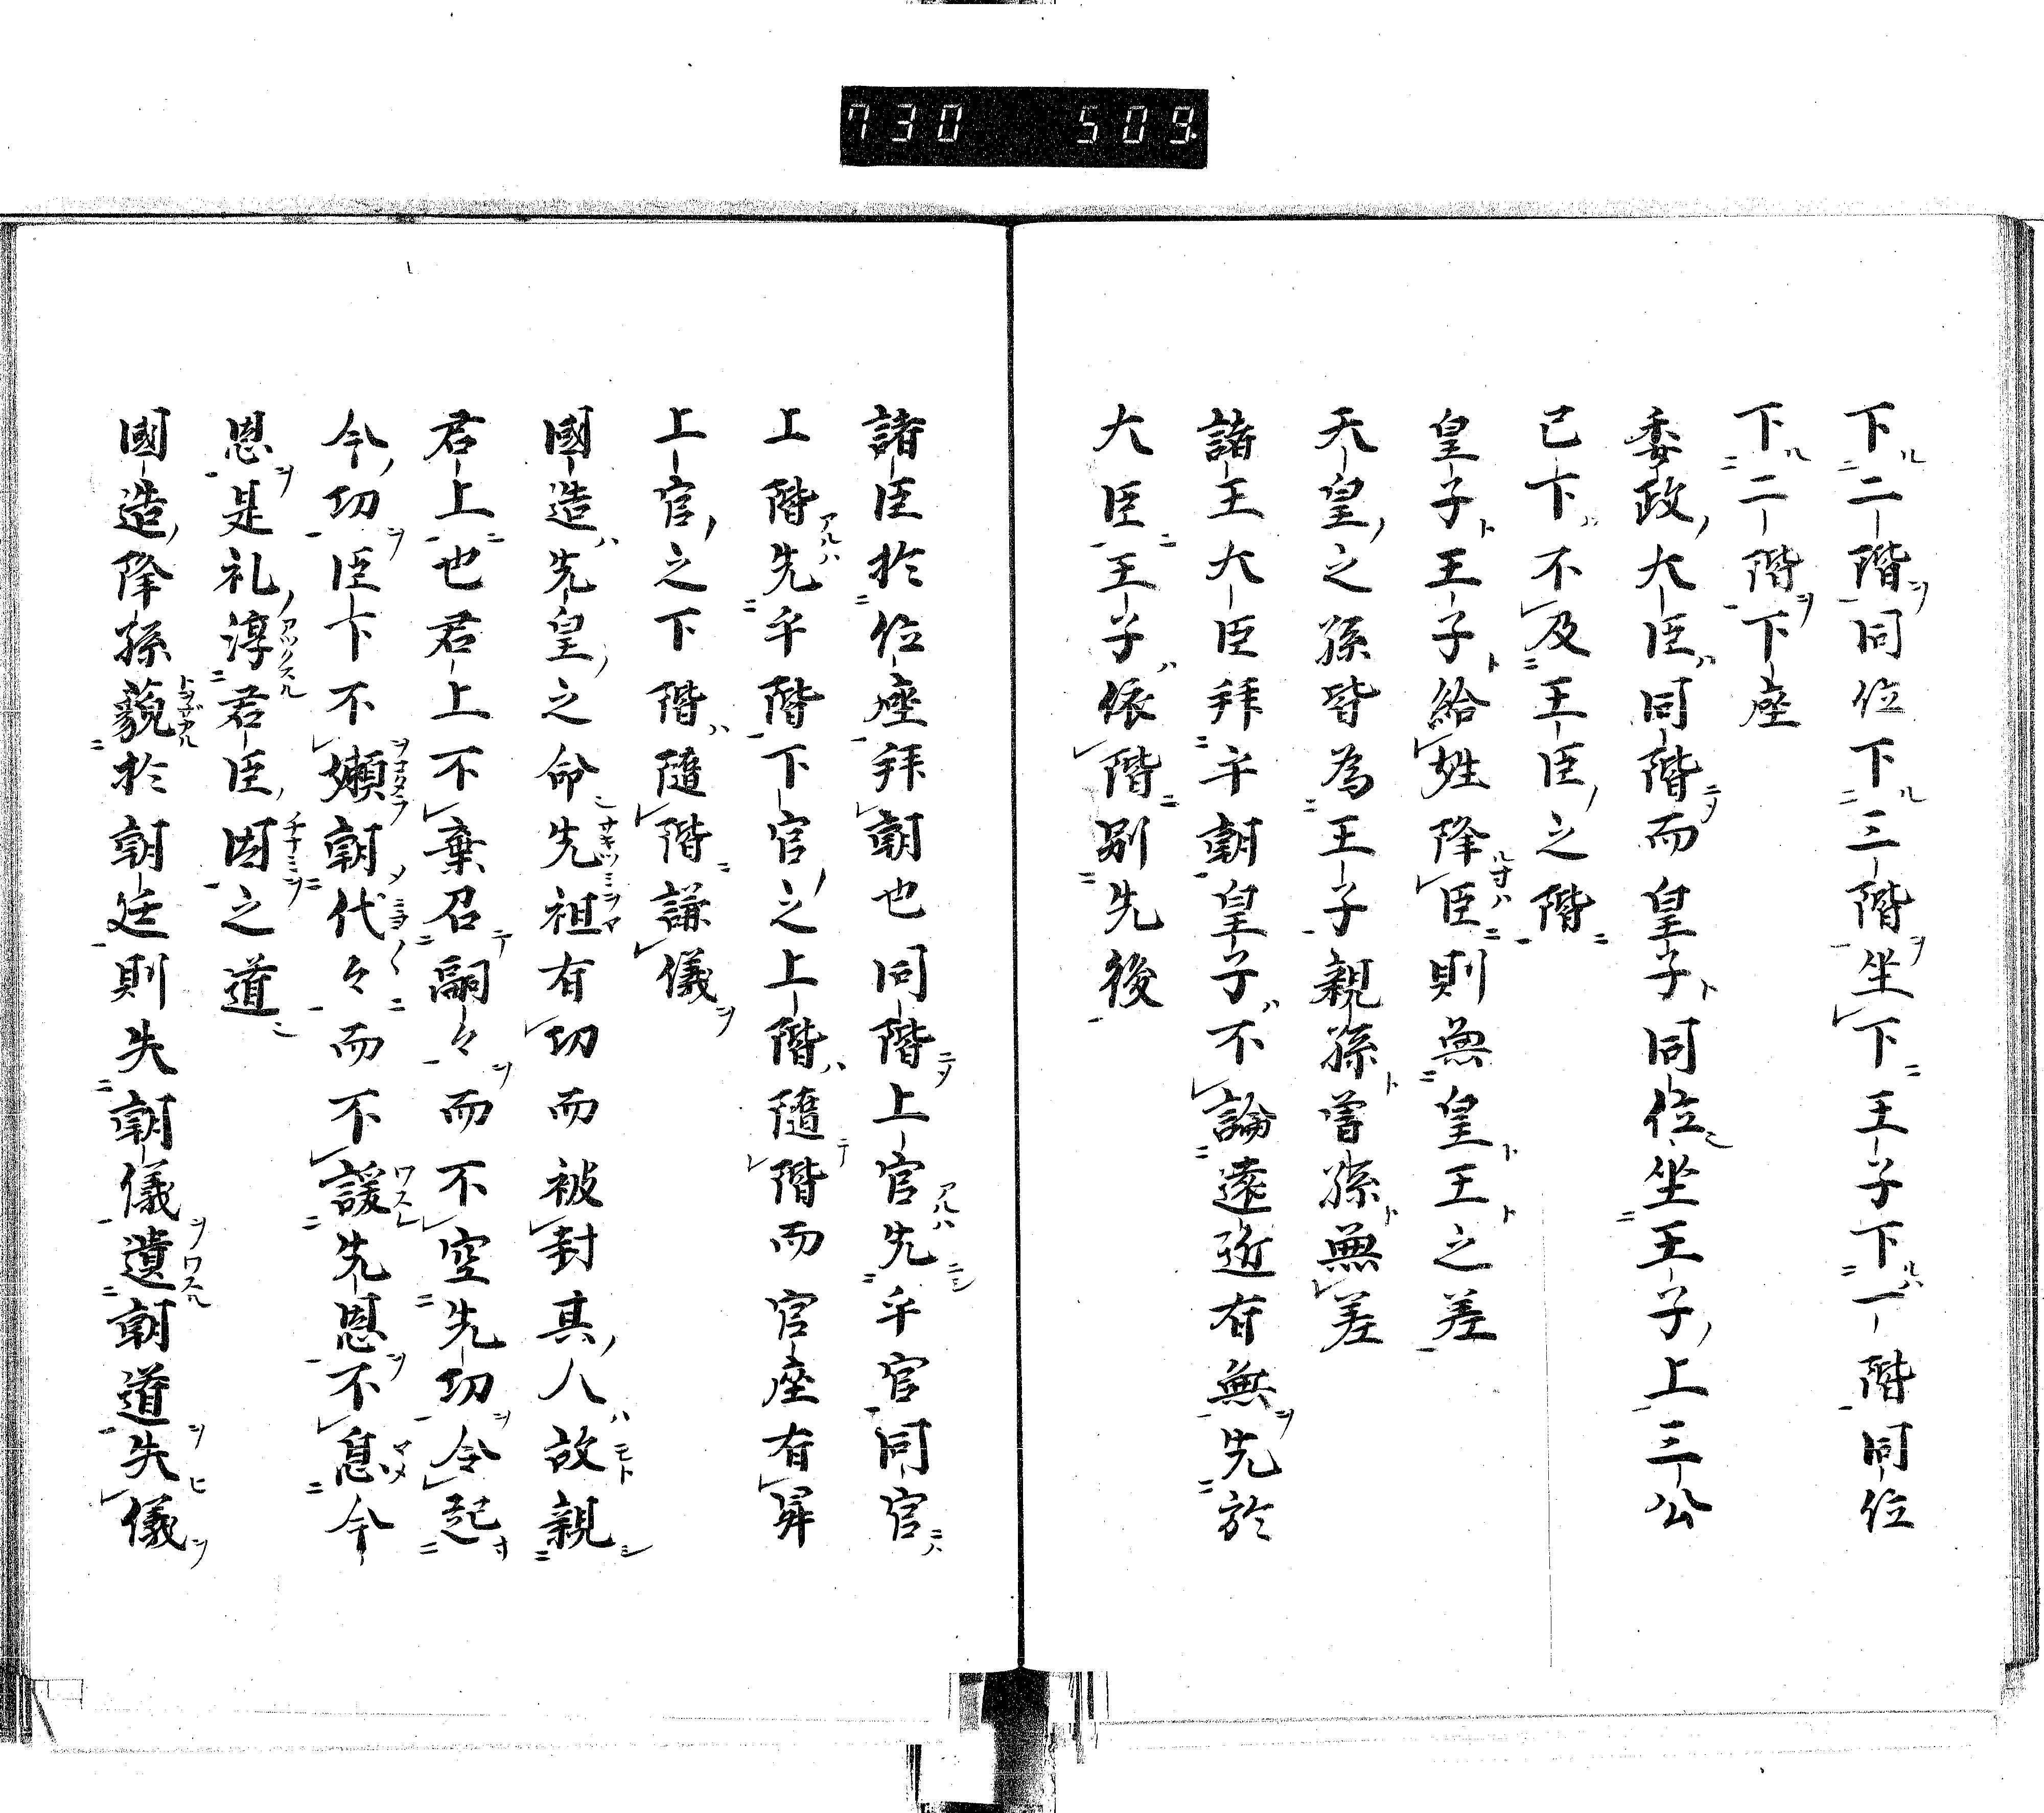 730 509
下二階同位下三階坐下王子下一階同位
下二階下座
委政大臣同階而皇子同位坐王子上三公
已下不及王臣之階
皇子王子給姓降臣則無皇王之差
天皇之孫皆為王子親孫曽孫無差
諸王大臣拜于朝皇子不論遠近有無先於
大臣王子依階別先後
諸臣於位座拜朝也同階上官先乎官同官
上階先乎階下官之上階隨階而官座有昇
上官之下階隨階謙儀
國造先皇之命先祖有功而被封其人故親
君上也君上不棄召嗣々而不空先功令起
今功臣下不嬾朝代々而不諼先恩不息今
恩是礼淳君臣因之道
國造降孫藐於朝廷則失朝儀遺朝道失儀